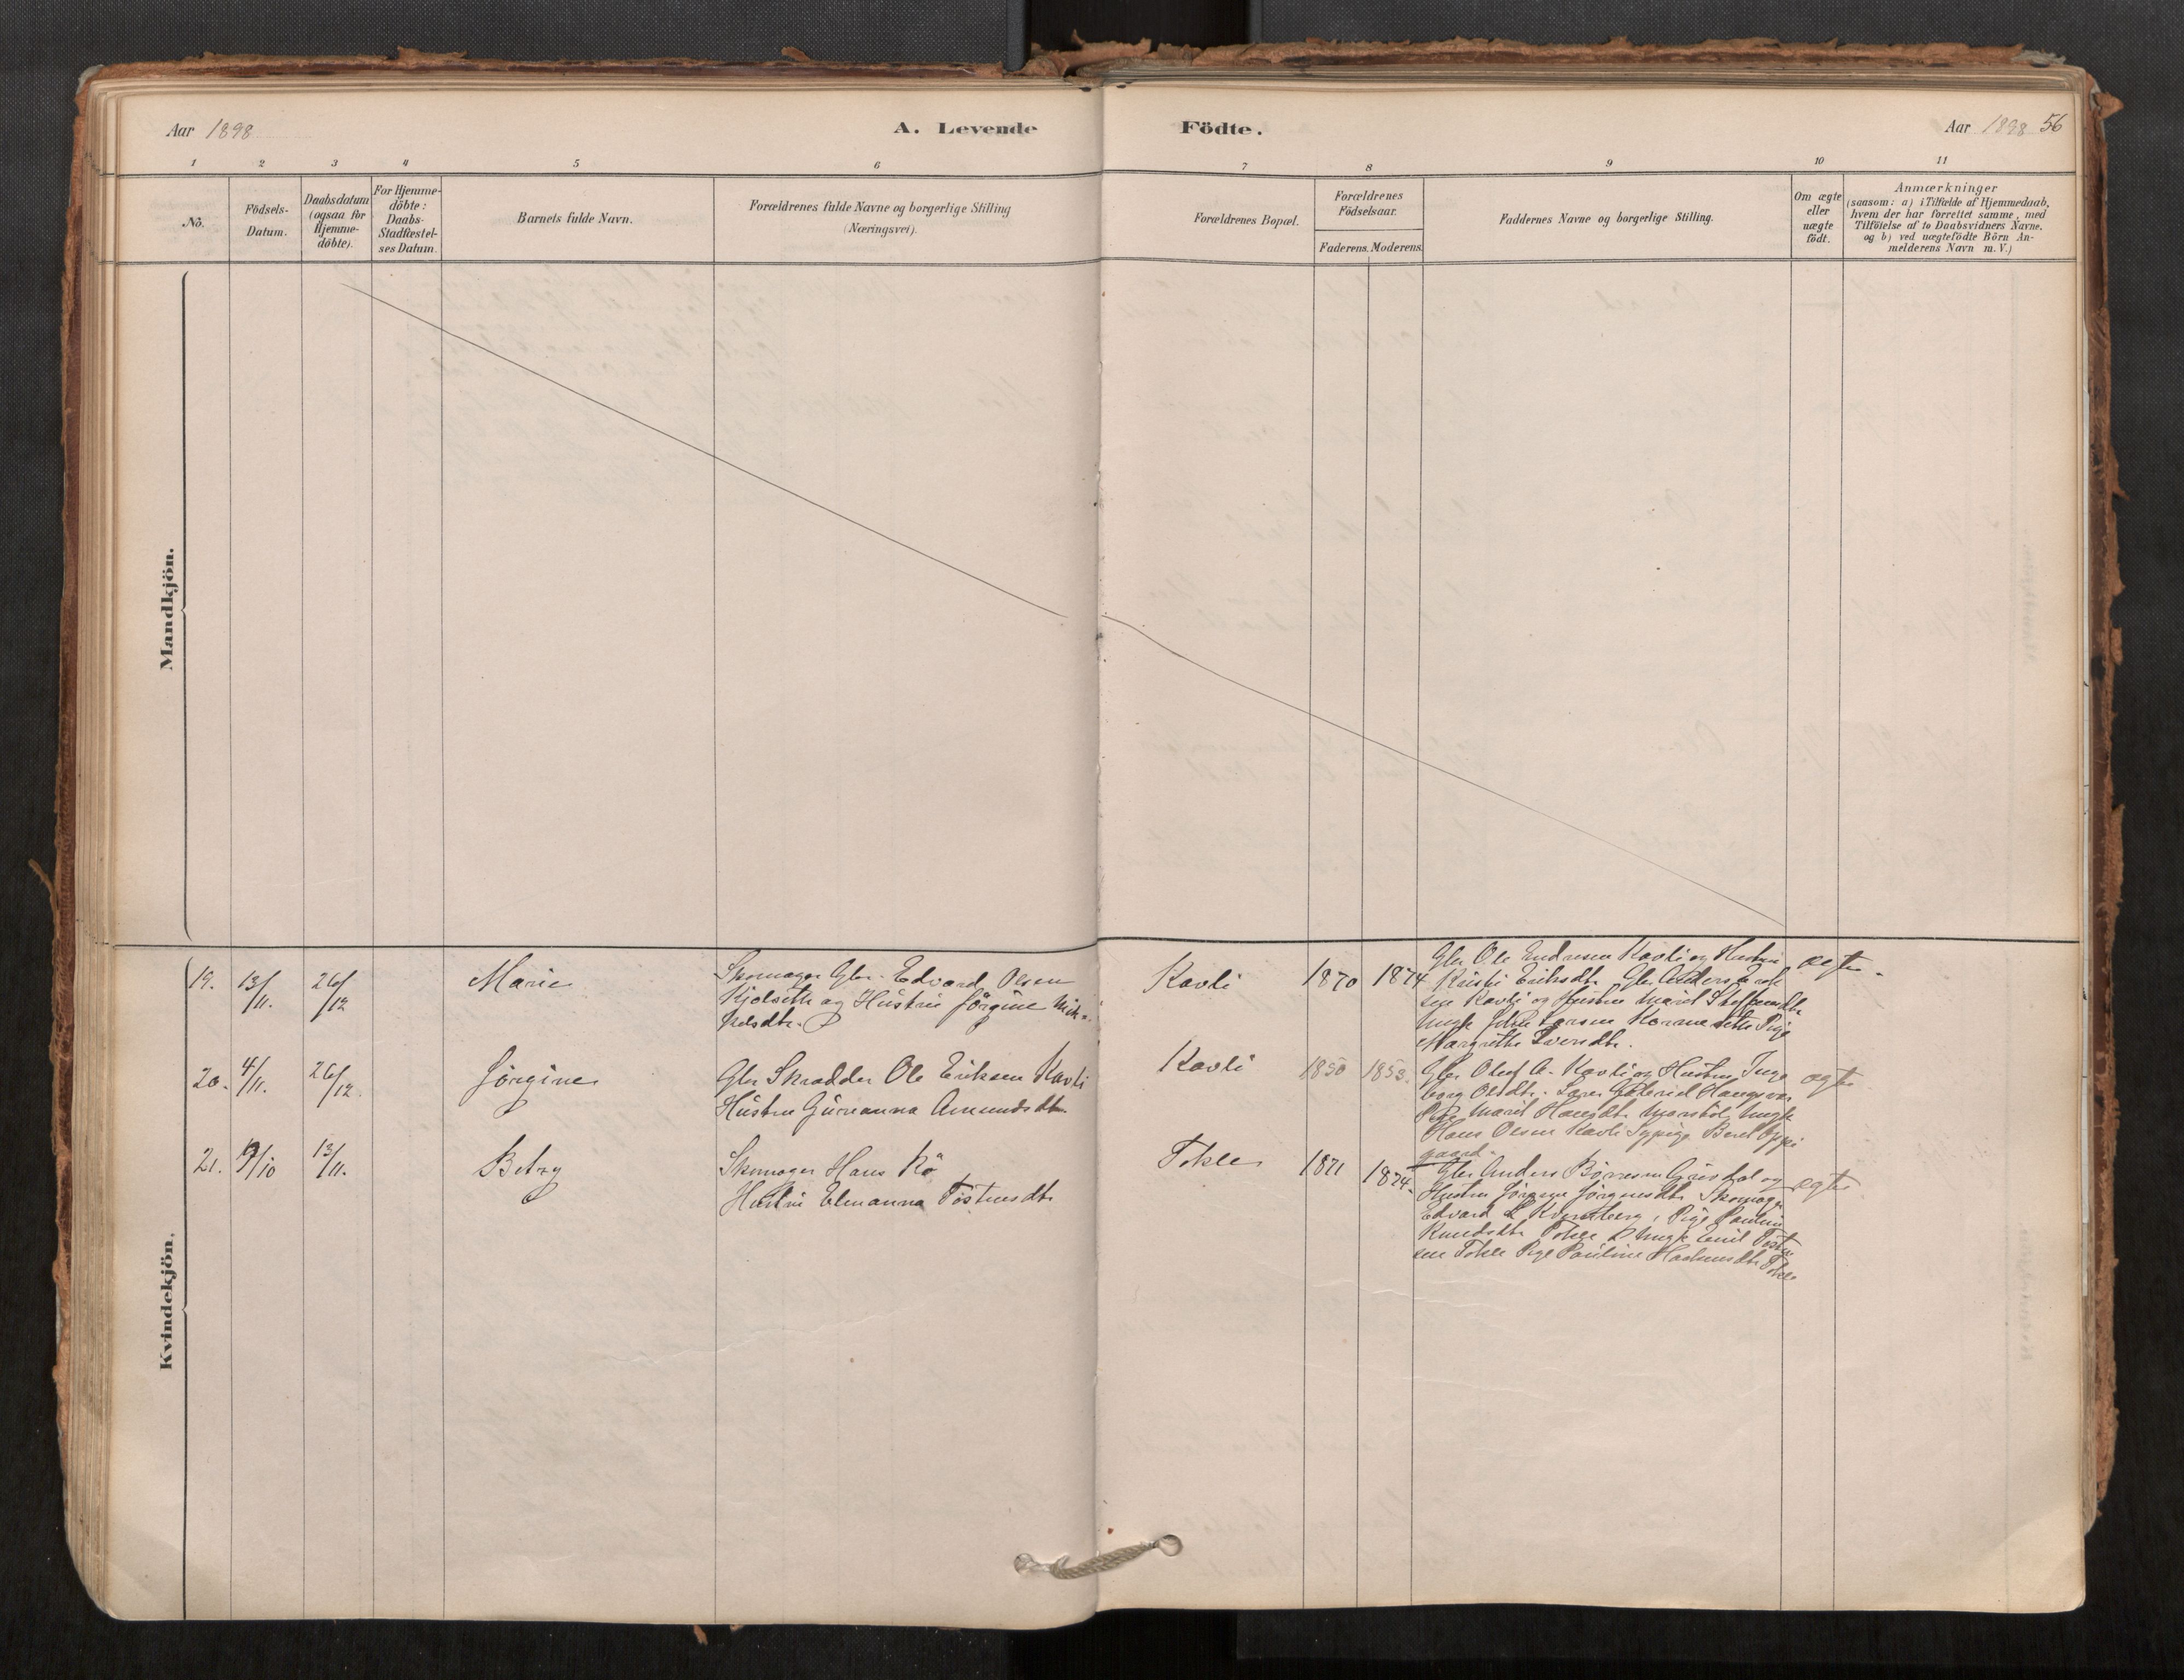 Aar 1898
A. Levende Födte.
Aar 1898 56
1 2 3 4 5 6 7 8 9 10 11
No.
Födsels-Datum.
Daabsdatum (ogsaa for Hjemme-döbte).
For Hjemme-döbte: Daabs-Stadfæstel-ses Datum.
Barnets fulde Navn.
Forældrenes fulde Navne og borgerlige Stilling
(Næringsvei).
Forældrenes Bopæl.
Forældrenes Födselsaar.
Faderens. Moderens.
Faddernes Navne og borgerlige Stilling.
Om ægte eller uægte födt.
Anmærkninger
(saasom: a) i Tilfælde af Hjemmedaab,
hvem der har forrettet samme, med
Tilföielse af to Daabsvidners Navne,
og b) ved uægtefödte Börn An-
melderens Navn m. V.)
Mandkjön.
Kvindekjön.
19. 13/11. 26/12 Marie
Skomager Gbr. Edvard Olsen
Kjolseth og Hustru Jörgine Mik-
kelsdtr.
Kavli 1870 1874
Gbr Ole Endresen Kavli og Hustru
Kristi Eriksdtr. Gbr Anders Erik
sen Kavli og Hustru Marit Steffensdtr
Ungk Larsen Pige
Margrethe Iversdtr.
ægte.
20. 4/11. 26/12. Jörgine
Gbr Skrædder Ole Eriksen Kavli
Hustru Gureanna Amundsdtr.
Kavli 1850 1853.
Gbr Oluf A. Kavli og Hustru Inge
borg Olsdtr.
Pige Marit Hansdtr. Ungk
Hans Olsen Kavli Sypige Beret Oppi
gaard.
ægte
21. 19/10 13/11. Betzy
Skomager Hans Rö
Hustru Elmanna Töstensdtr
Tokle 1871 1874.
Gbr Anders Börresen og
Hustru Jörgine Jörgensdtr Skomager
Edvard L Kvernberg, Pige Pauline
Knudsdtr Tokle Ungk Emil Tösten
sen Tokle Pige Pauline Tokle
ægte